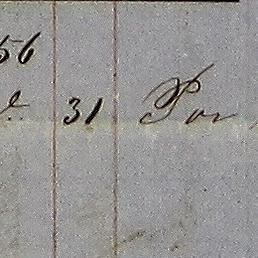 56
31 Por